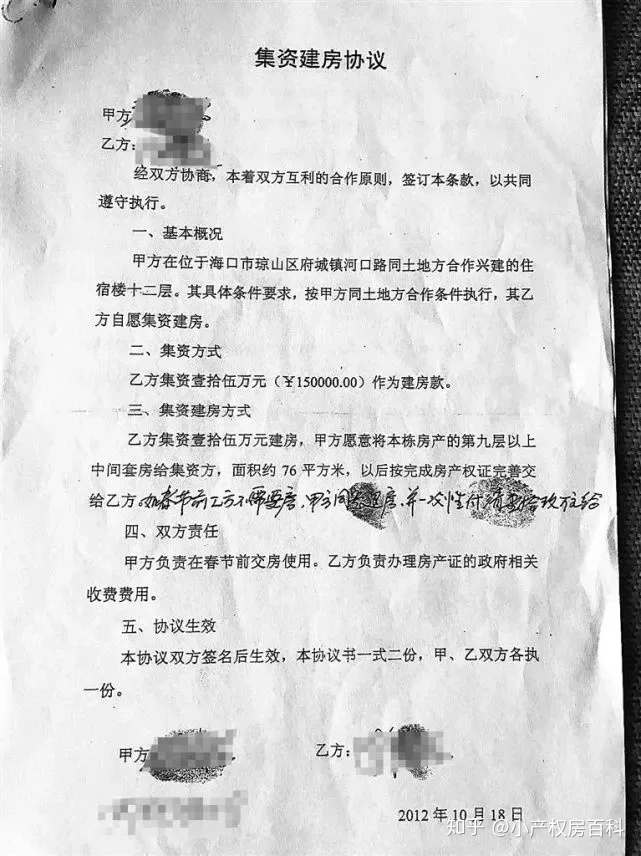 集资建房协议
甲方
乙方:
经双方协商,本着双方互利的合作原则,签订本条款,以共同
遵守执行。
一、基本概况
甲方在位于海口市琼山区府城镇河口路同土地方合作兴建的住
宿楼十二层。其具体条件要求,按甲方同土地方合作条件执行,其乙
方自愿集资建房。
二、集资方式
乙方集资壹拾伍万元(￥150000.00)作为建房款。
三、集资建房方式
乙方集资壹拾伍万元建房,甲方愿意将本栋房产的第九层以上
中间套房给集资方,面积约 76 平方米,以后按完成房产权证完善交
给乙方。如春节前乙方不需要房,甲方同退房,并一次性付清拾玖万给
四、双方责任
甲方负责在春节前交房使用。乙方负责办理房产证的政府相关
收费费用。
五、协议生效
本协议双方签名后生效,本协议书一式二份,甲、乙双方各执
一份。
甲方
乙方:
2012 年 10 月 18 日
知乎 @小产权房百科